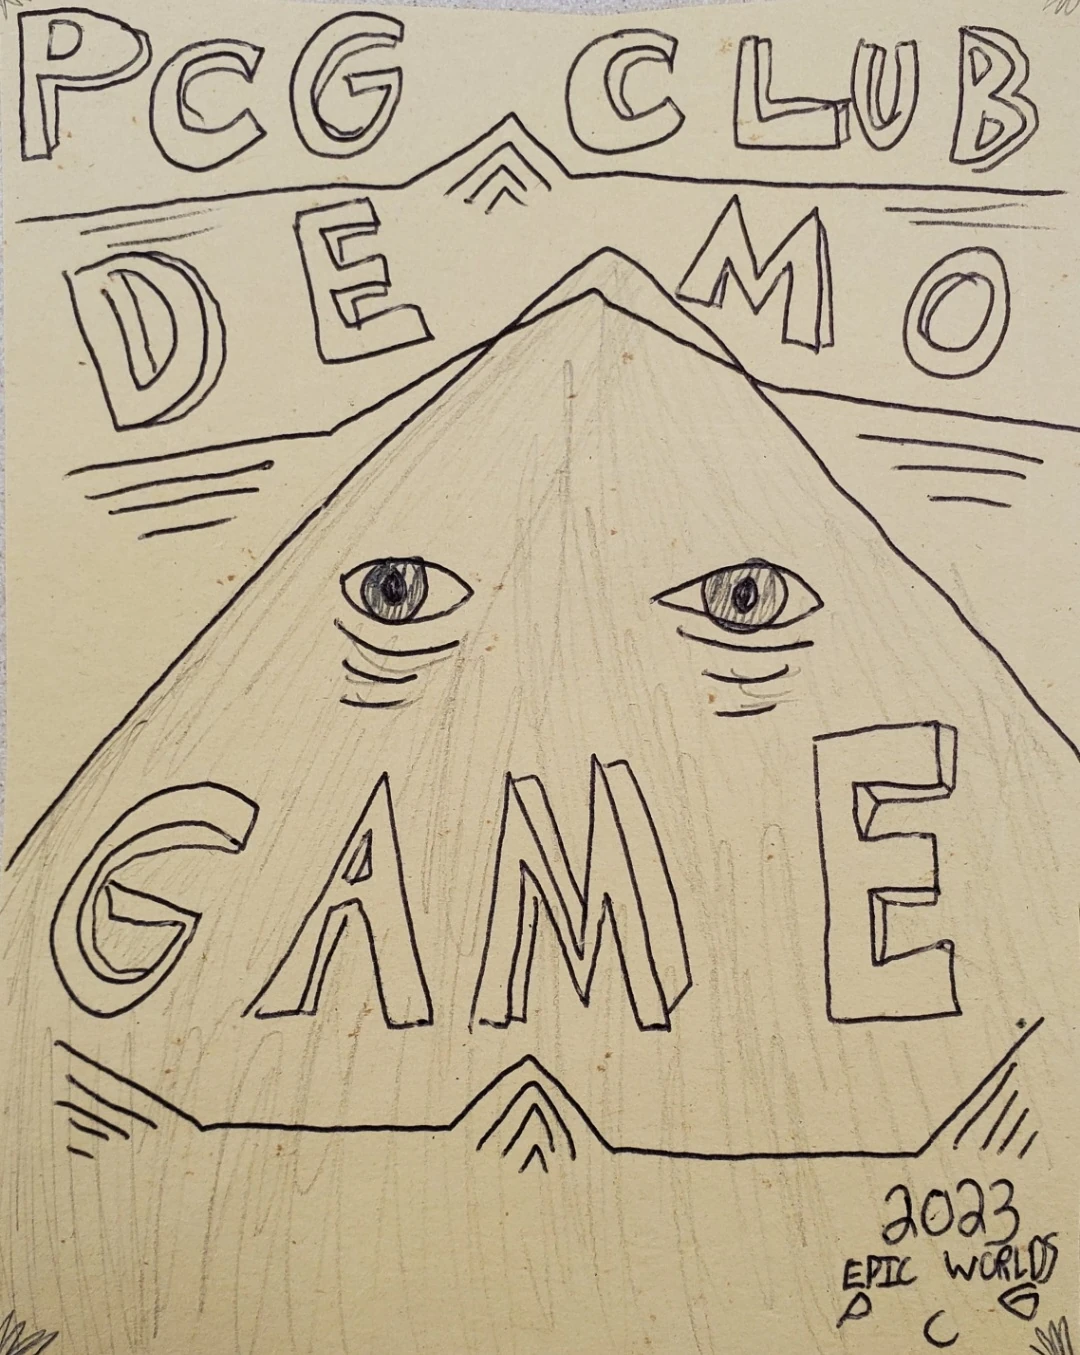 PCG CLUB
DEMO
GAME
2023
EPIC WORLDS
P C G